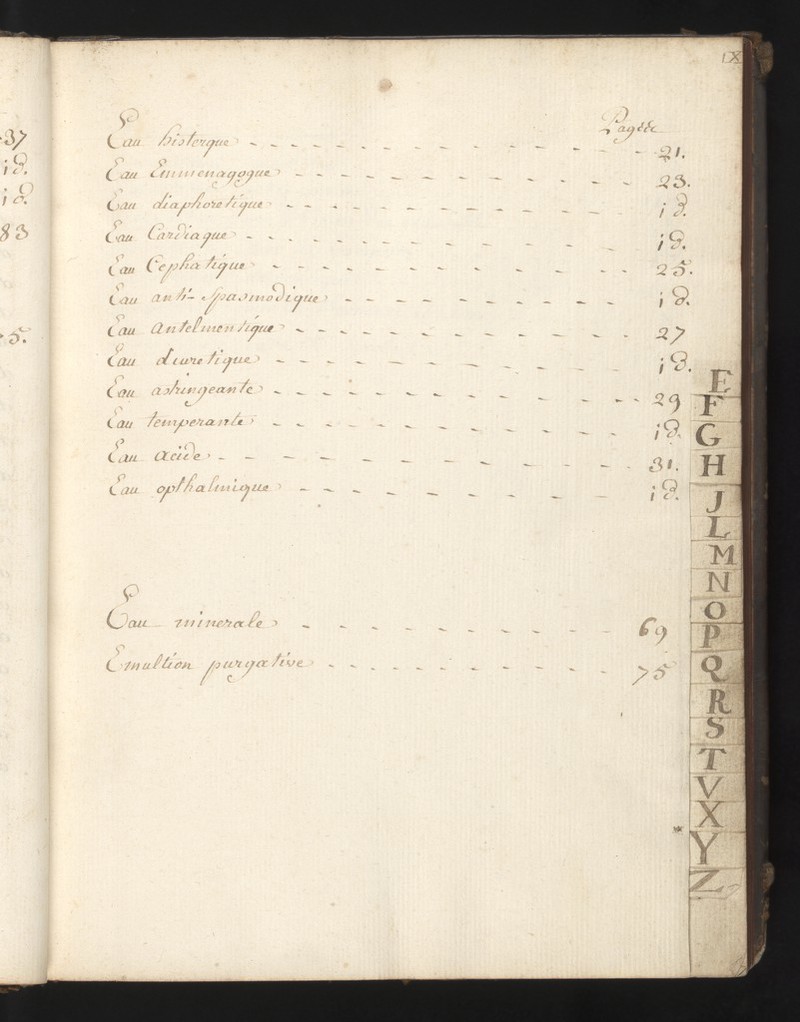 37
id.
id
83
5.
IX
Pages
Eau histerque - - - - - - - - - - - - 21.
Eau Emmenagogue - - - - - - - - - - 23.
Eau diaphoretique - - - - - - - - - - id.
Eau Cardiaque - - - - - - - - - - - id.
Eau Cephatique - - - - - - - - - 25.
Eau anti-Spasmodique - - - - - - - - id.
Eau Antelmentique - - - - - - - - - - 27
Eau diuretique - - - - - - - - - - id.
Eau astringeante - - - - - - - - - - - 29
Eau temperante - - - - - - - - - - id.
Eau acide - - - - - - - - - - - 31.
Eau opthalmique - - - - - - - - id.
Eau minerale - - - - - - - - - 69
Emultion purgative - - - - - - - - - - 75
E
F
G
H
J
L
M
N
O
P
Q
R
S
T
V
X
Y
Z